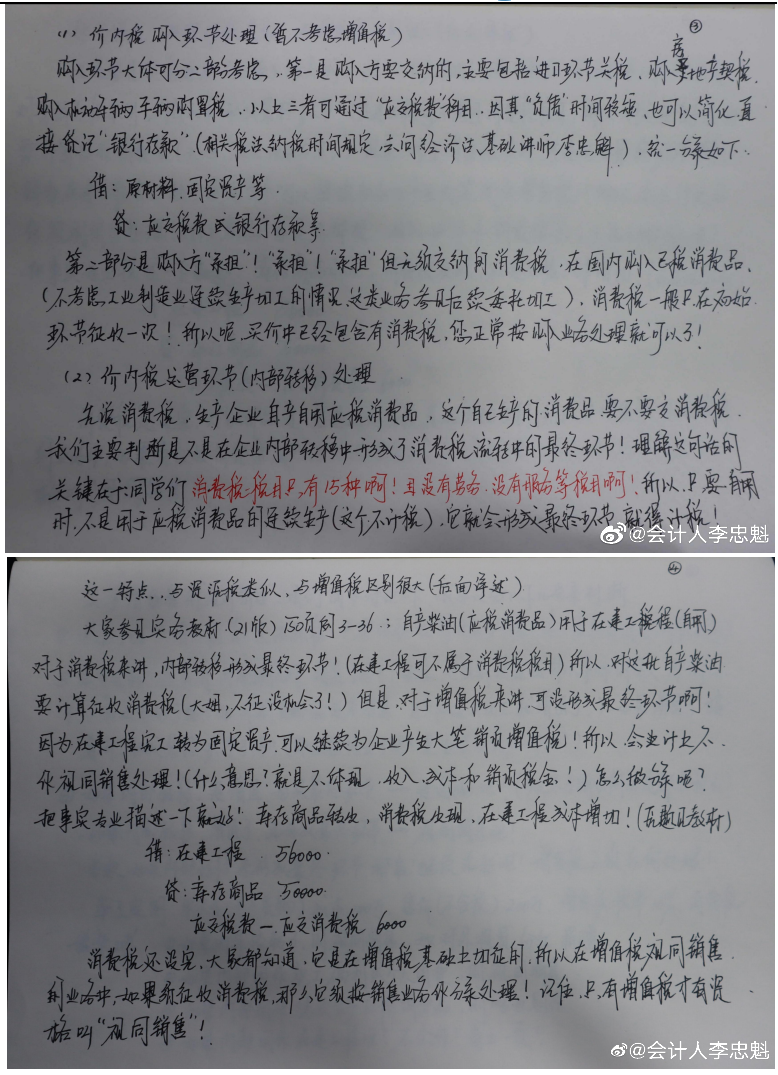 ③
(1) 价内税购入环节处理(暂不考虑增值税)
购入环节大体可分二部分考虑。第一是购入方要交纳的,主要包括进口环节关税、购入房地产契税、
购入机动车辆车辆购置税。以上三者可通过“应交税费”科目。因其“负债”时间较短,也可以简化,直
接贷记“银行存款”(相关税法纳税时间规定,去问经济法基础讲师李忠魁)。统一分录如下:
借:原材料、固定资产等
贷:应交税费或银行存款等
第二部分是购入方“承担”!“承担”!“承担”但无须交纳的消费税。在国内购入已税消费品,
(不考虑工业制造业连续生产加工的情况,这类业务参见后续委托加工),消费税一般只在初始
环节征收一次!所以呢,买价中已经包含有消费税,您正常按购入业务处理就可以了!
(2) 价内税运营环节(内部转移)处理
先说消费税,生产企业自产自用应税消费品,这个自己生产的消费品要不要交消费税,
我们主要判断是不是在企业内部转移中形成了消费税流转中的最终环节!理解这句话的
关键在于同学们消费税税目只有15种啊!且没有劳务、没有服务等税目啊!所以,只要自用
时,不是用于应税消费品的连续生产(这个不计税),它就会形成最终环节,就得计税!
@会计人李忠魁
④
这一特点,与资源税类似,与增值税区别很大(后面详述)
大家参见实务教材(21版)150页例3-36:自产柴油(应税消费品)用于在建工程(自用)
对于消费税来讲,内部转移形成最终环节!(在建工程可不属于消费税税目)所以,对这批自产柴油
要计算征收消费税(大姐,不征没机会了!)但是,对于增值税来讲,可没形成最终环节啊!
因为在建工程完工转为固定资产,可以继续为企业产生大笔销项增值税!所以会计上不
作视同销售处理!(什么意思?就是不体现、收入、成本和销项税金!)怎么做分录呢?
把事实专业描述一下就好!库存商品转出,消费税出现,在建工程成本增加!(原题见教材)
借:在建工程 56000
贷:库存商品 50000
应交税费—应交消费税 6000
消费税还没完,大家都知道,它是在增值税基础上加征的,所以在增值税视同销售
的业务中,如果须征收消费税,那么它须按销售业务作分录处理!记住,只有增值税才有资
格叫“视同销售”!
@会计人李忠魁